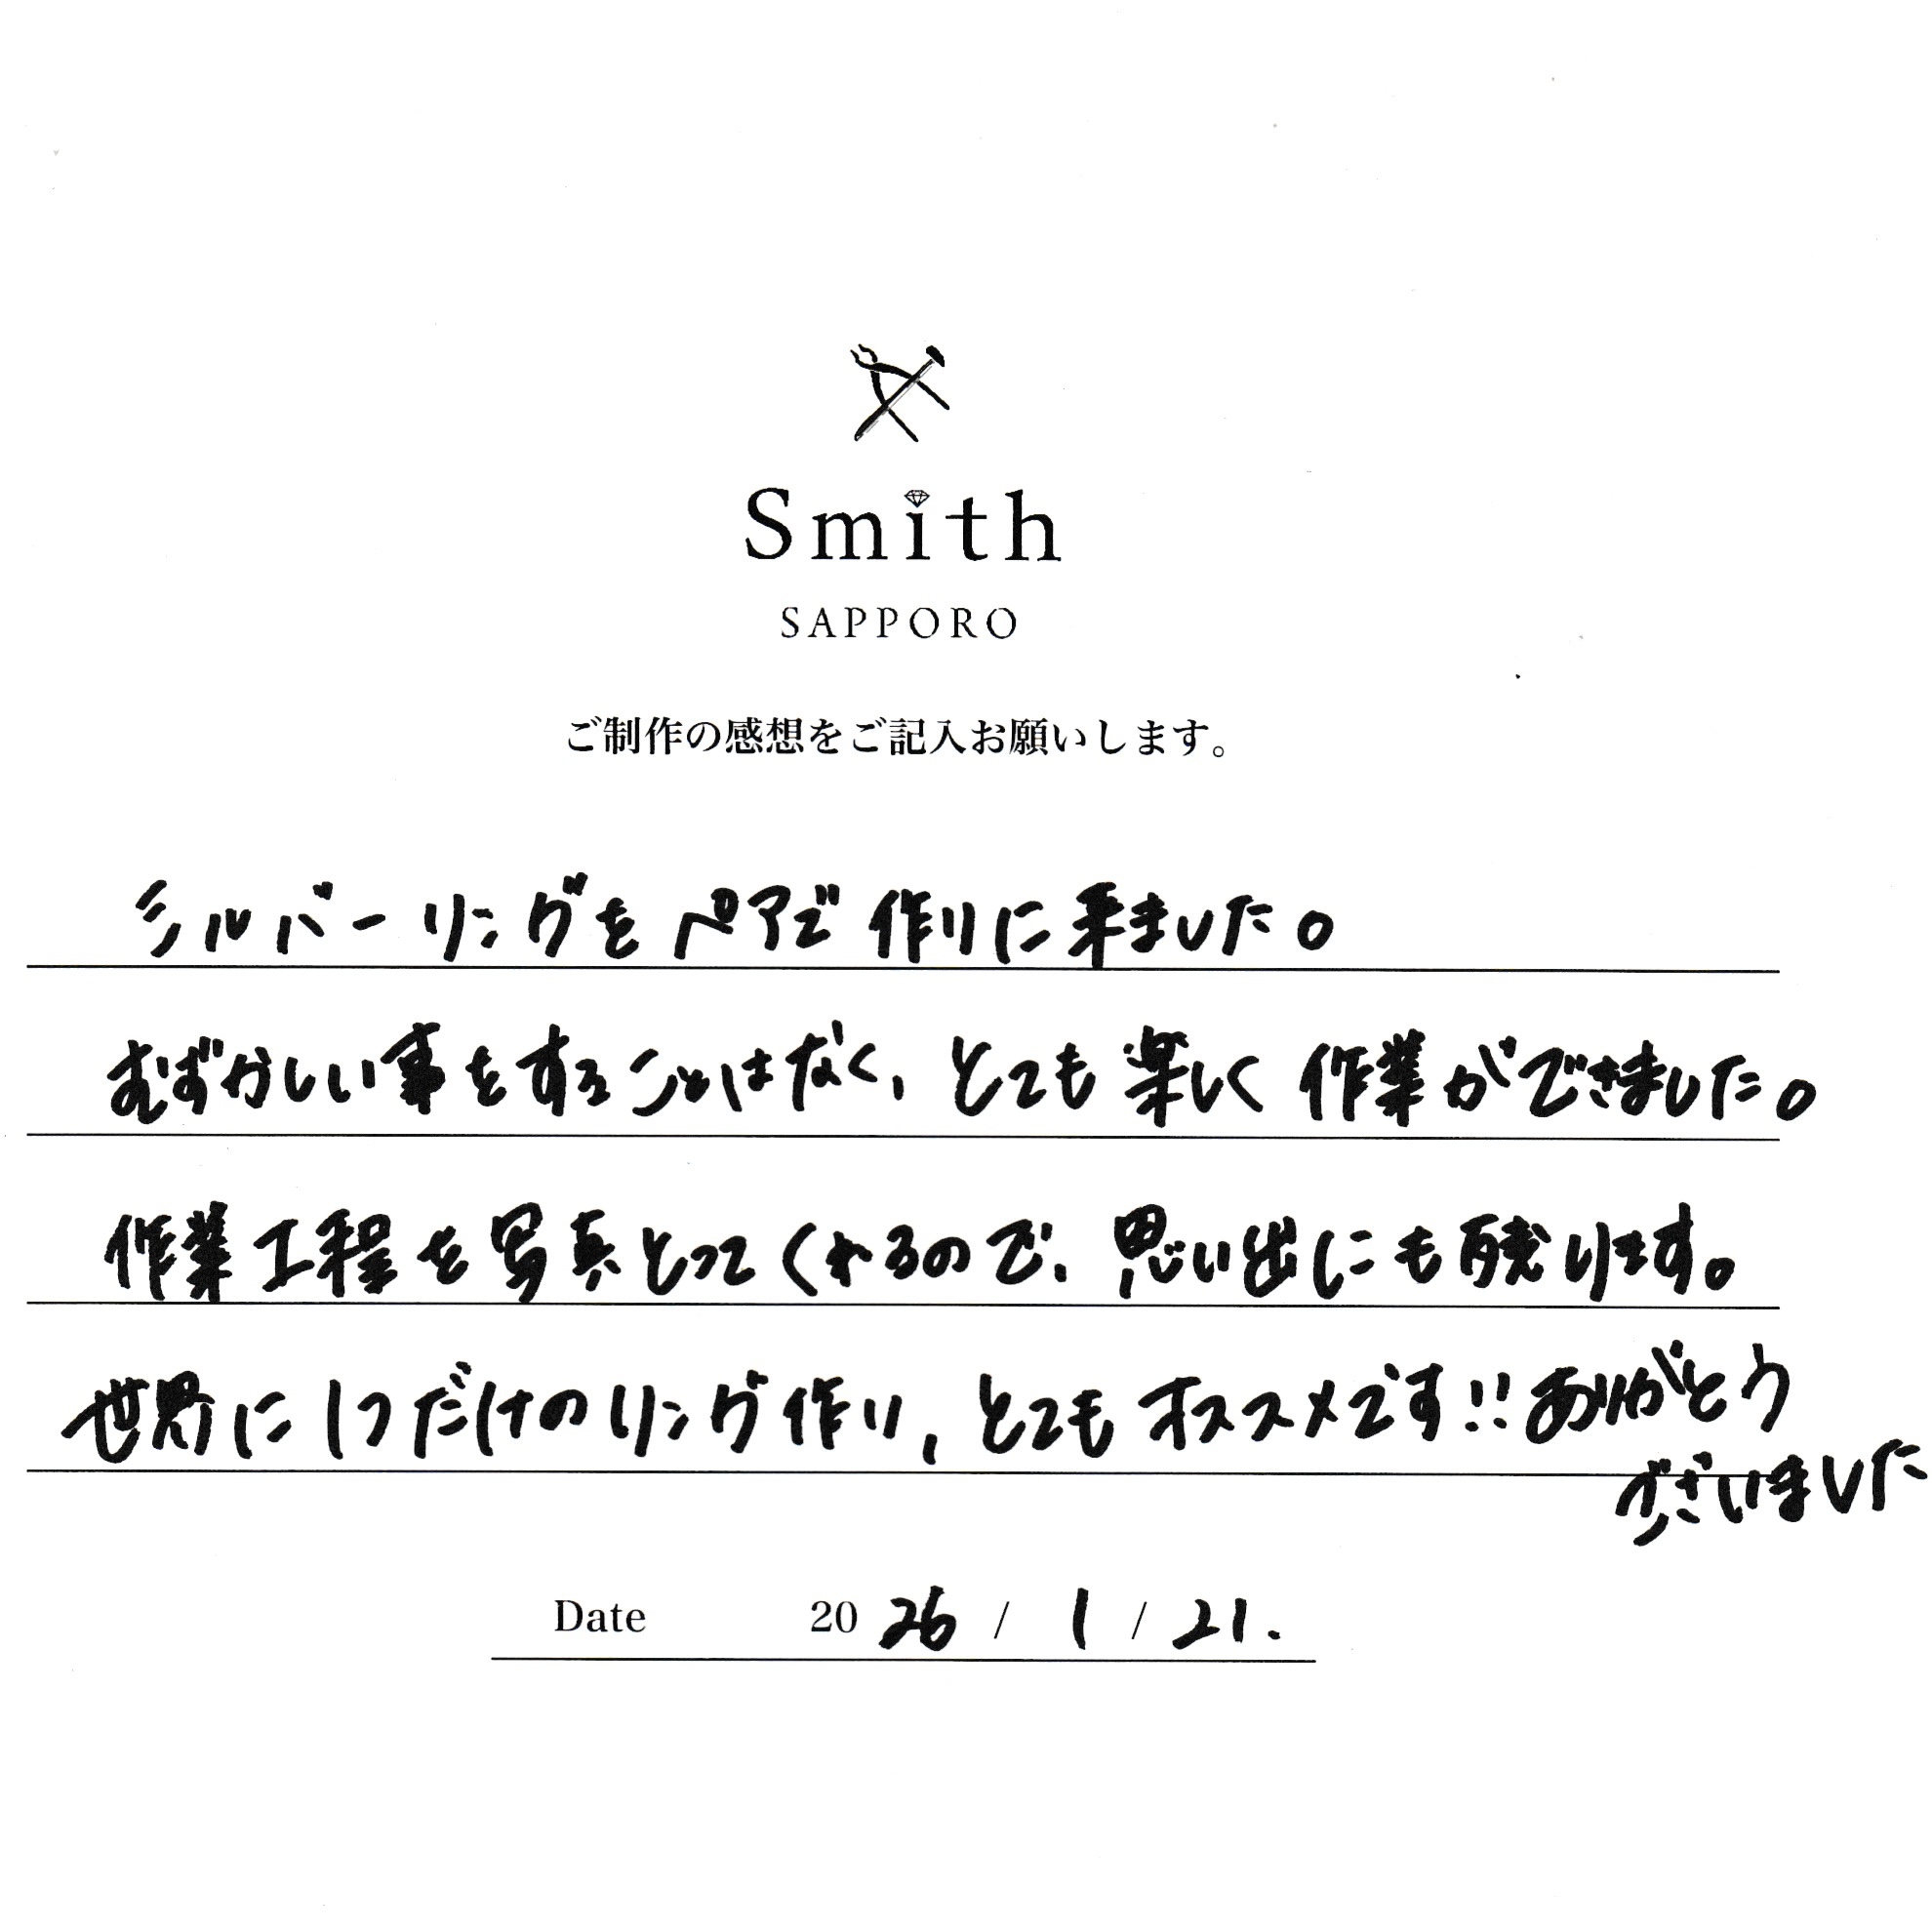 Smith
SAPPORO
ご制作の感想をご記入お願いします。
シルバーリングをペアで作りに来ました。
むずかしい事をすることはなく、とても楽しく作業ができました。
作業工程を写真とってくれるので、思い出にも残ります。
世界に1つだけのリング作り、とてもオススメです!!ありがとう
ございました
Date 2026/1/21.